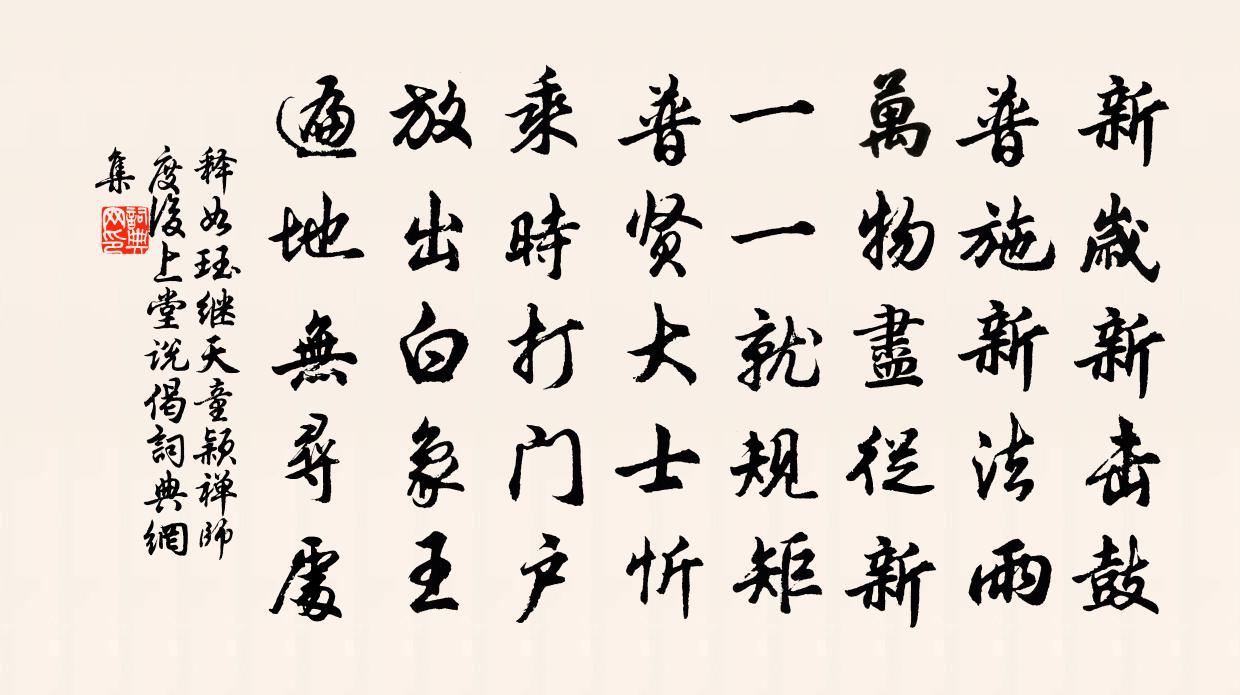 新歲新击鼓
普施新法雨
萬物盡從新
一一就规矩
普贤大士忻
乘時打门户
放出白象王
遍地無尋處
释如珏继天童颖禅师
度後上堂说偈詞典網
集
詞典网印